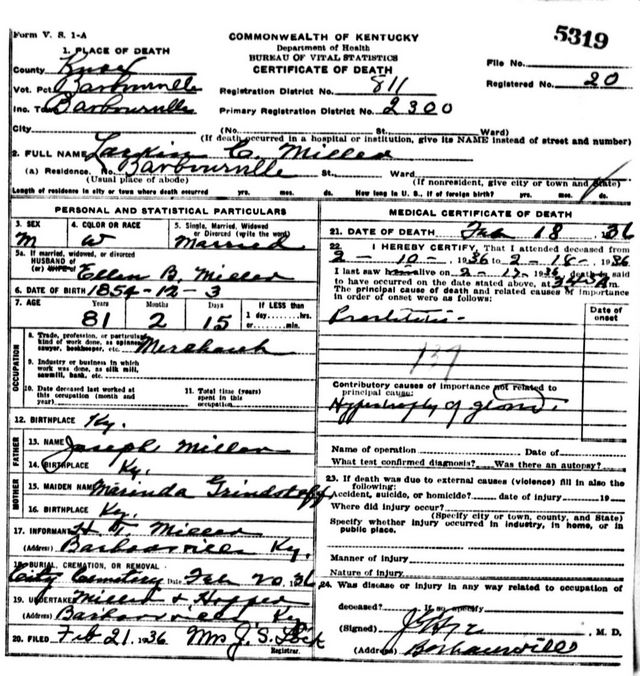 Form V. S. 1-A
COMMONWEALTH OF KENTUCKY
Department of Health
BUREAU OF VITAL STATISTICS
CERTIFICATE OF DEATH
5319
File No.
Registered No. 20
1. PLACE OF DEATH
County Knox
Vot. Pct. Barbourville
Inc. Town Barbourville
Registration District No. 811
Primary Registration District No. 2300
City (No. St. Ward)
(If death occurred in a hospital or institution, give its NAME instead of street and number)
2. FULL NAME Larkin C. Miller
(a) Residence. No. Barbourville St., Ward
(Usual place of abode) (If nonresident, give city or town and State)
Length of residence in city or town where death occurred yrs. mos. ds. How long in U. S., if of foreign birth? yrs. mos.
PERSONAL AND STATISTICAL PARTICULARS
3. SEX M
4. COLOR OR RACE W
5. Single, Married, Widowed or Divorced (write the word) Married
5a. If married, widowed, or divorced
HUSBAND of
(or) WIFE of Ellen B. Miller
6. DATE OF BIRTH 1854-12-3
7. AGE Years Months Days If LESS than
81 2 15 1 day, hrs.
or min.
OCCUPATION
8. Trade, profession, or particular
kind of work done, as spinner,
sawyer, bookkeeper, etc. Merchant
9. Industry or business in which
work was done, as silk mill,
sawmill, bank, etc.
10. Date deceased last worked at
this occupation (month and
year)
11. Total time (years)
spent in this
occupation
12. BIRTHPLACE Ky.
FATHER
13. NAME Joseph Miller
14. BIRTHPLACE Ky.
MOTHER
15. MAIDEN NAME Marinda Grindstaff
16. BIRTHPLACE Ky.
17. INFORMANT H T Miller
(Address) Barbourville Ky.
18. BURIAL, CREMATION, OR REMOVAL
City Cemetery Date Feb 20, 1936
19. UNDERTAKER Miller & Hopper
(Address) Barbourville Ky
20. FILED Feb 21, 1936 Mrs J. S. Lock
Registrar.
MEDICAL CERTIFICATE OF DEATH
21. DATE OF DEATH Feb 18, 36
22 I HEREBY CERTIFY, That I attended deceased from
2-10-, 1936 to 2-18-, 1936
I last saw him alive on 2-17-1936, death is said
to have occurred on the date stated above, at m.
The principal cause of death and related causes of importance
in order of onset were as follows:
Date of
onset
Prostatitis-
137
Contributory causes of importance not related to
principal cause:
Hypertrophy of gland.
Name of operation Date of
What test confirmed diagnosis? Was there an autopsy?
23. If death was due to external causes (violence) fill in also the
following:
Accident, suicide, or homicide? date of injury 19
Where did injury occur?
(Specify city or town, county, and State)
Specify whether injury occurred in industry, in home, or in
public place.
Manner of injury
Nature of injury
24. Was disease or injury in any way related to occupation of
deceased? If so, specify
(Signed) M. D.
(Address) Barbourville